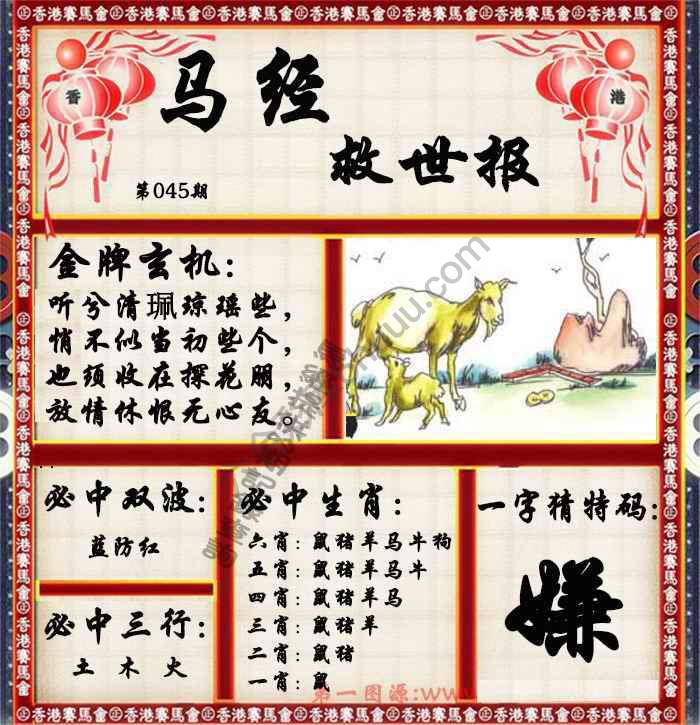 香港賽馬會
香
港
马经
救世报
第045期
金牌玄机：
听兮清珮琼瑶些，
悄不似当初些个，
也须收在探花朋，
放情休恨无心友。
必中双波：
蓝防红
必中三行：
土 木 火
必中生肖：
六肖：鼠猪羊马牛狗
五肖：鼠猪羊马牛
四肖：鼠猪羊马
三肖：鼠猪羊
二肖：鼠猪
一肖：鼠
一字猜特码：
嫌
第一图源:www